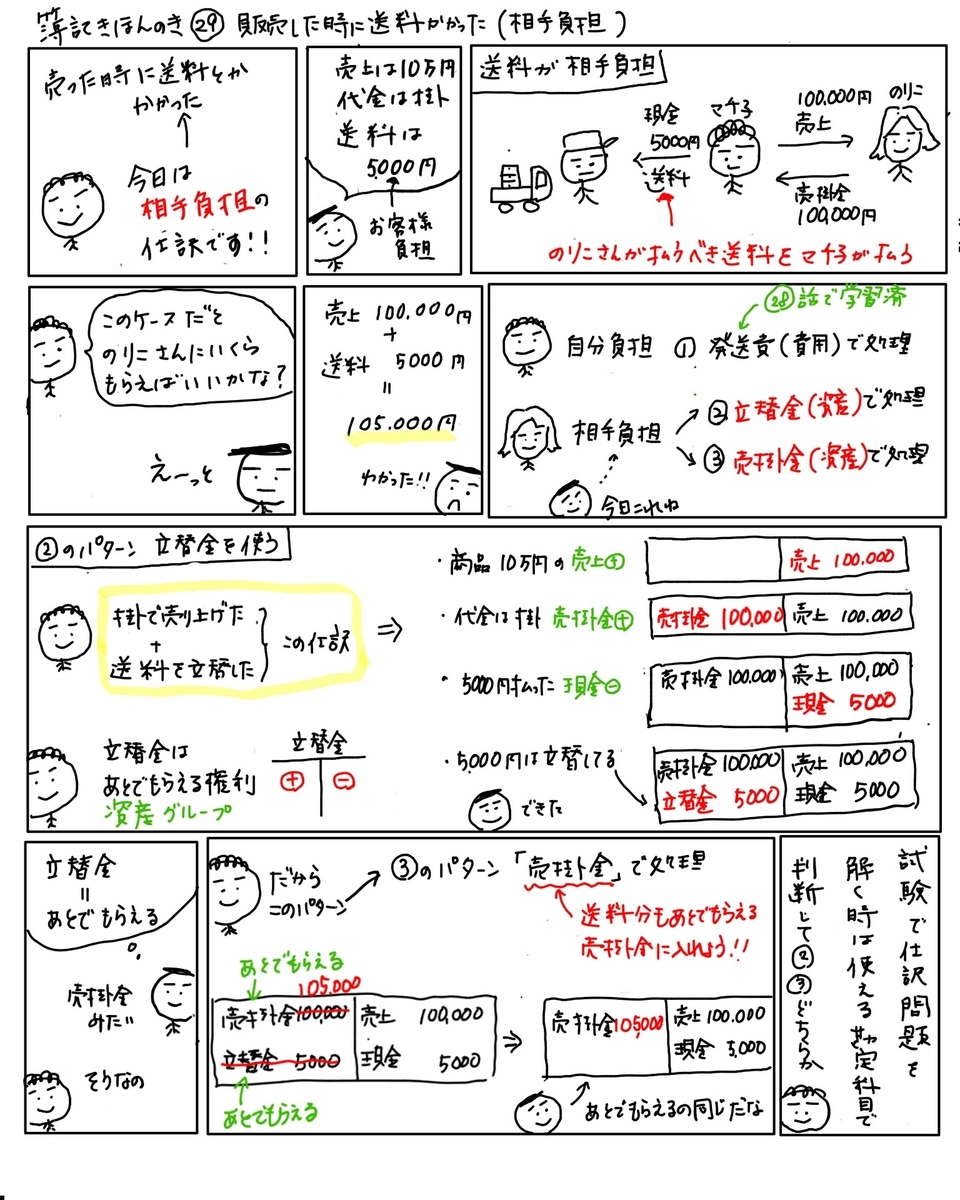 簿記きほんのき㉙ 販売した時に送料かかった(相手負担)
売った時に送料とか
かかった
今日は
相手負担の
仕訳です!!
売上は10万円
代金は掛
送料は
5,000円
お客様
負担
送料が相手負担
現金
5000円
送料
マチ子
100,000円
売上
のりこ
売掛金
100,000円
のりこさんが払うべき送料をマチ子が払う
このケースだと
のりこさんにいくら
もらえばいいかな?
えーっと
売上 100,000円
+
送料 5000円
=
105,000円
わかった!!
㉘話で学習済
自分負担 ① 発送費(費用)で処理
相手負担
②立替金(資産)で処理
③売掛金(資産)で処理
今日これね
②のパターン 立替金を使う
掛で売り上げた
+
送料を立替した
この仕訳
⇒
立替金は
あとでもらえる権利
資産グループ
立替金
+ −
・商品10万円の売上+
売上 100,000
・代金は掛 売掛金+
売掛金 100,000 売上 100,000
・5000円払った 現金−
売掛金 100,000 売上 100,000
現金 5000
・5,000円は立替してる
売掛金 100,000 売上 100,000
立替金 5000 現金 5000
できた
立替金
=
あとでもらえる
売掛金
みたい
そうなの
だから
このパターン
③のパターン 「売掛金」で処理
送料分もあとでもらえる
売掛金に入れよう!!
あとでもらえる
105,000
売掛金 100,000 売上 100,000
立替金 5000 現金 5000
あとでもらえる
⇒
売掛金105,000 売上 100,000
現金 5,000
あとでもらえるの同じだな
試験で仕訳問題を
解く時は使える勘定科目で
判断して②③どちらか